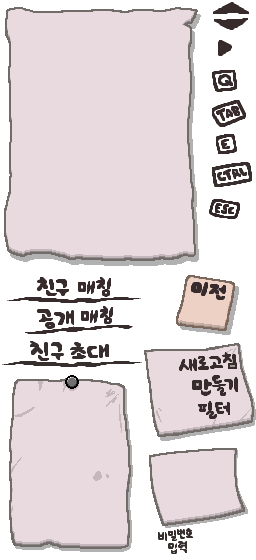 Q
TAB
E
CTRL
ESC
친구 매칭
공개 매칭
친구 초대
이전
새로고침
만들기
필터
비밀번호
입력